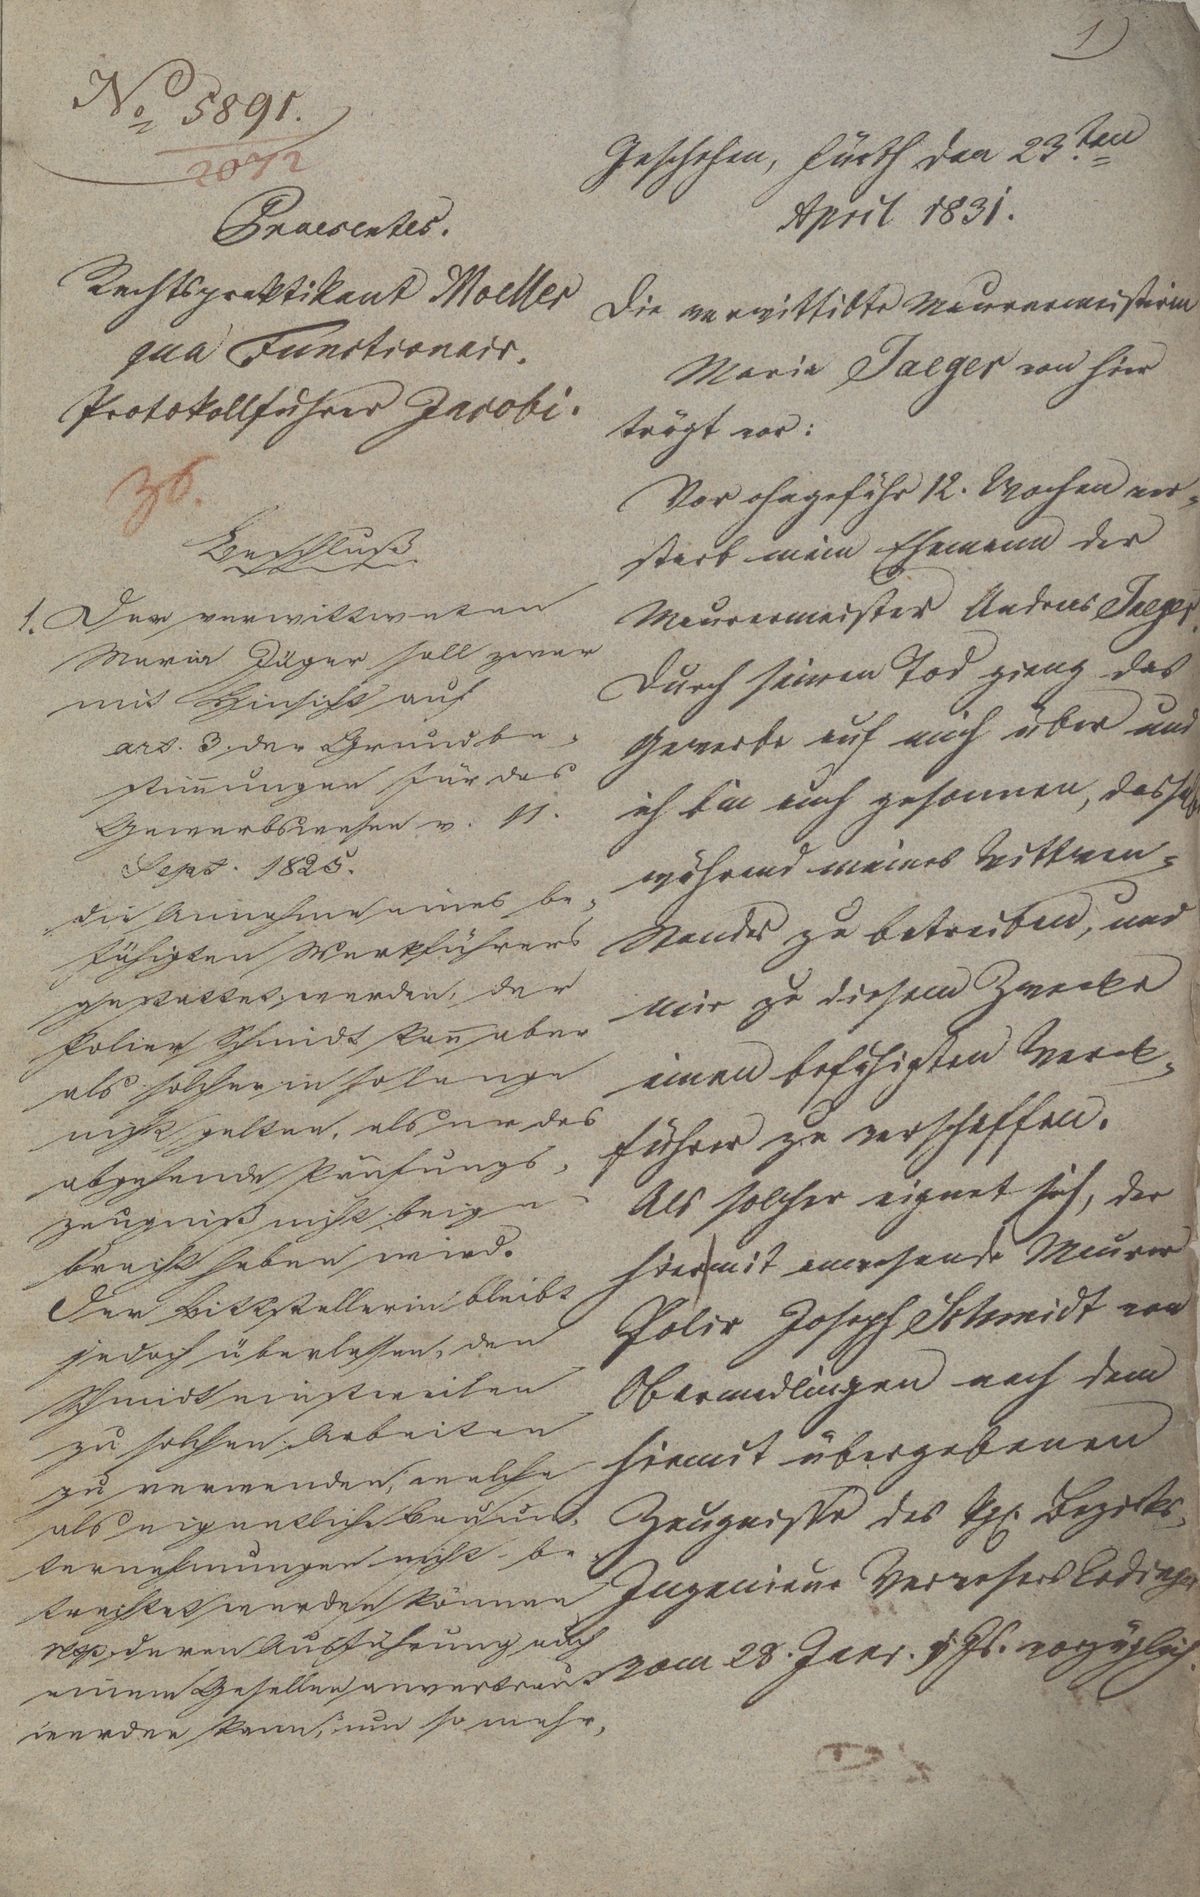 1)
No 5891.
2072
Praesentes.
Rechtspraktikant Moeller
qua Functionair.
Protokollführer Jacobi.
36.
Beschluß
1. Der verwittweten
Maria Jäger soll zwar
mit Hinsicht auf
art. 3. der Grundbe-
stim̄ungen für das
Gewerbswesen v. 11.
Sept. 1825.
die Annahme eines be-
fähigten Werkführers
gestattet werden, der
Polier Schmidt kan̄ aber
als solcher in so lange
nicht gelten, als er das
abgehende Prüfungs-
zeugniß nicht beige-
bracht haben wird.
Der Bittstellerin bleibt
jedoch überlassen, den
Schmidt einstweilen
zu solchen Arbeiten
zu verwenden, welche
als eigentliche Bauun-
ternehmungen nicht be-
trachtet werden können
resp. deren Ausführung auch
einem Gesellen anvertraut
werden kann, um so mehr,
Geschehen, Fürth den 23.ten
April 1831.
Die verwittibte Maurermeisterin
Maria Jaeger von hier
trägt vor:
Vor ohngefähr 12. Wochen ver-
starb mein Ehemann der
Maurermeister Andreas Jaeger.
Durch seinen Tod gieng das
Gewerbe auf mich über und
ich bin auch gesonnen, dasselbe
während meines Wittwen-
Standes zu betreiben, und
mir zu diesem Zwecke
einen befähigten Werk-
führer zu verschaffen.
Als solcher eignet sich, der
hiermit anwesende Maurer
Polir Joseph Schmidt von
Obermedlingen nach dem
hiemit übergebenen
Zeugnisse des kgl. Bezirks-
Ingenieur Verwesers
vom 28. Janr. d. Js. vorzüglich.